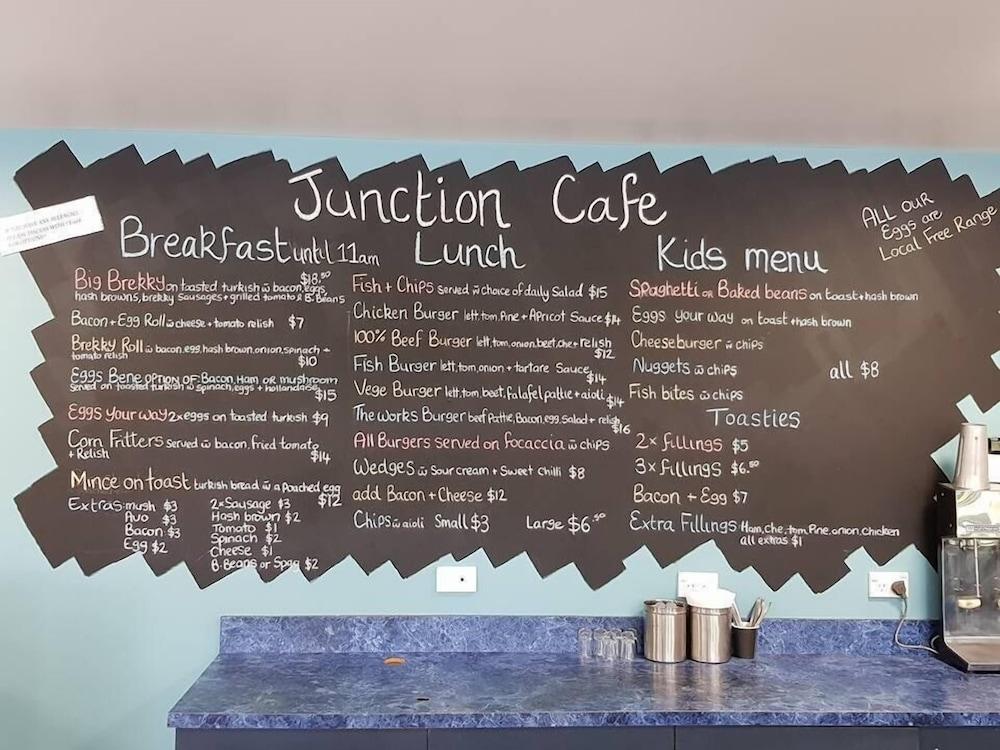 Junction Cafe
ALL OUR
Eggs are
Local Free Range
Breakfast until 11am
Big Brekky on toasted turkish w̄ bacon, eggs, $18.50
hash browns, brekky sausages + grilled tomato & B.Beans
Bacon + Egg Roll w̄ cheese + tomato relish $7
Brekky Roll w̄ bacon, egg, hash brown, onion, spinach +
tomato relish $10
Eggs Bene OPTION OF: Bacon, Ham OR mushroom
served on toasted turkish w̄ spinach, eggs + hollandaise $15
Eggs your way 2x eggs on toasted turkish $9
Corn Fritters served w̄ bacon, fried tomato
+ Relish $14
Mince on toast turkish bread w̄ a poached egg
$12
Extras: mush $3
Avo $3
Bacon $3
Egg $2
2x Sausage $3
Hash brown $2
Tomato $1
Spinach $2
Cheese $1
B.Beans or Spag $2
Lunch
Fish + Chips served w̄ choice of daily Salad $15
Chicken Burger lett, tom, Pine + Apricot Sauce $14
100% Beef Burger lett, tom, onion, beet, che + relish
$12
Fish Burger lett, tom, onion + tartare Sauce
$14
Vege Burger lett, tom, beet, falafel pattie + aioli $14
The works Burger beef Pattie, Bacon, egg, Salad + relish
$16
All Burgers served on Focaccia w̄ chips
Wedges w̄ Sour cream + Sweet Chilli $8
add Bacon + Cheese $12
Chips w̄ aioli Small $3 Large $6.50
Kids menu
Spaghetti OR Baked beans on toast + hash brown
Eggs your way on toast + hash brown
Cheeseburger w̄ chips
Nuggets w̄ chips all $8
Fish bites w̄ chips
Toasties
2x fillings $5
3x fillings $6.50
Bacon + Egg $7
Extra Fillings: Ham, che, tom, Pine, onion, chicken
all extras $1